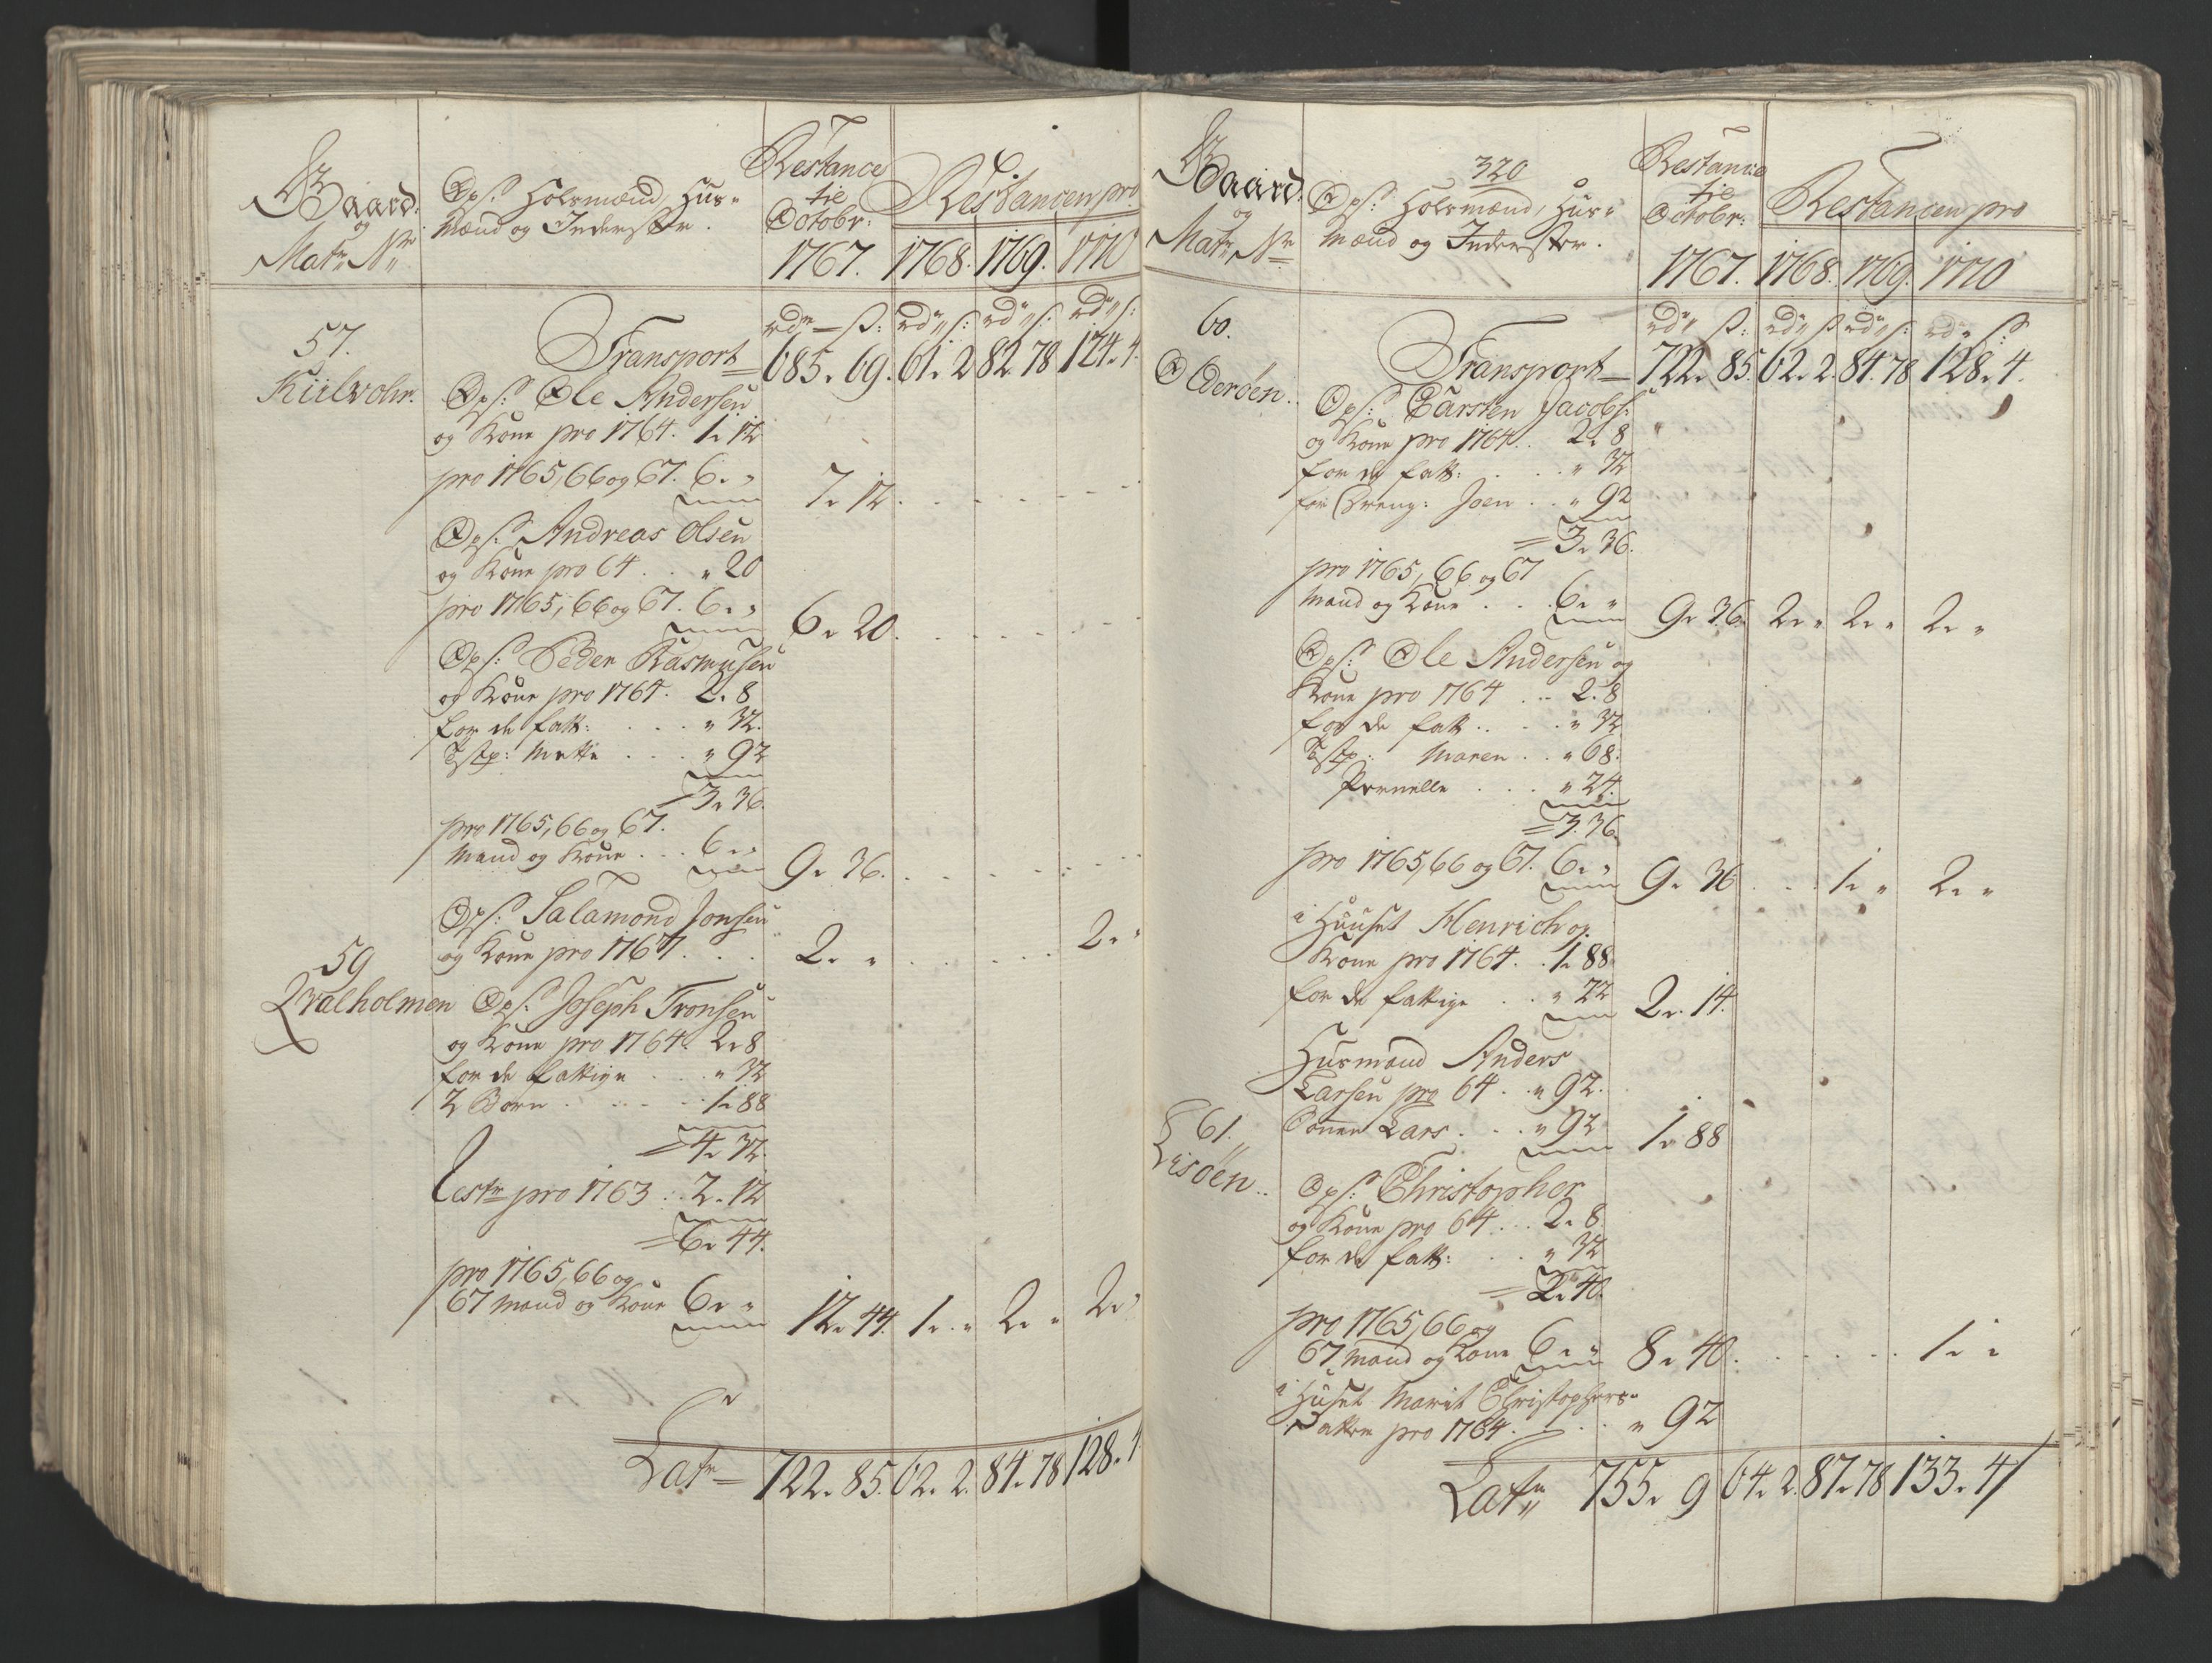 Gaard
og
Matr. No
Ops: Holsmænd, Hus-
mænd og Inderster.
Restance
til
Octobr:
1767.
Restancen pro
1768. 1769. 1770
rdr ß: rd ß: rd ß: rd ß:
57.
Kiilvohr.
Transport 685. 69. 61. 2 82. 78 124. 4.
Ops: Ole Andersen
og Kone pro 1764. 1. 12
pro 1765, 66 og 67. 6. " 7. 12.
Ops: Andreas Olsen
og Kone pro 64 . . " 20
pro 1765, 66 og 67. 6. " 6. 20.
Ops: Peder Rasmusen
og Kone pro 1764. 2. 8
for de fatt: . . . " 32.
Tstp: Mette . . . " 92
3. 36.
pro 1765, 66 og 67.
Mand og Kone . . . 6. " 9. 36.
Ops: Salamond Jonsen
og Kone pro 1767. . . 2. " 2. "
59
Qvalholmen
Ops: Joseph Tronsen
og Kone pro 1764. 2. 8
for de fattige . . . " 32
2 Børn . . . . . 1. 88
4. 32.
Rest pro 1763 . . 2. 12
6. 44.
pro 1765, 66 og
67 Mand og Kone 6. " 12. 44. 1. " 2. " 2. "
Latr 722. 85. 62. 2. 84. 78 128. 4
320
Gaard
og
Matr No
Ops: Holsmænd, Hus-
mænd og Inderster.
Restance
til
Octobr:
1767.
Restancen pro
1768. 1769. 1770
rd ß: rd ß rd ß: rd ß
60.
Oderøen.
Transport 722. 85. 62. 2. 84. 78 128. 4.
Ops: Carsten Jacobs:
og Kone pro 1764. . 2. 8
for de fatt: . . . " 32
for Dreng: Joen . . " 92
3. 36.
pro 1765, 66 og 67
Mand og Kone . . . 6. " 9. 36. 2. " 2. " 2. "
Ops: Ole Andersen og
Kone pro 1764 . . 2. 8
for de fatt . . . . " 32
Tstp: Maren . . " 68.
Pernelle . . . " 24.
3. 36.
pro 1765, 66 og 67. 6. " 9. 36 . . . 1. " 2. "
i Huuset Henrich og
Kone pro 1764. . 1. 88
for de fattige . . " 22 2. 14.
Husmand Anders
Larsen pro 64 . . " 92.
Sønen Lars . . . " 92 1. 88
61.
Lisøen..
Ops: Christopher
og Kone pro 64 . . . 2. 8.
for de fatt: . . " 32
2. 40.
pro 1765, 66 og
67 Mand og Kone 6. " 8. 40. 1. "
i Huset Marit Christophers-
datter pro 1764. . . . " 92
Latr 755. 9 64. 2. 87. 78 133. 4